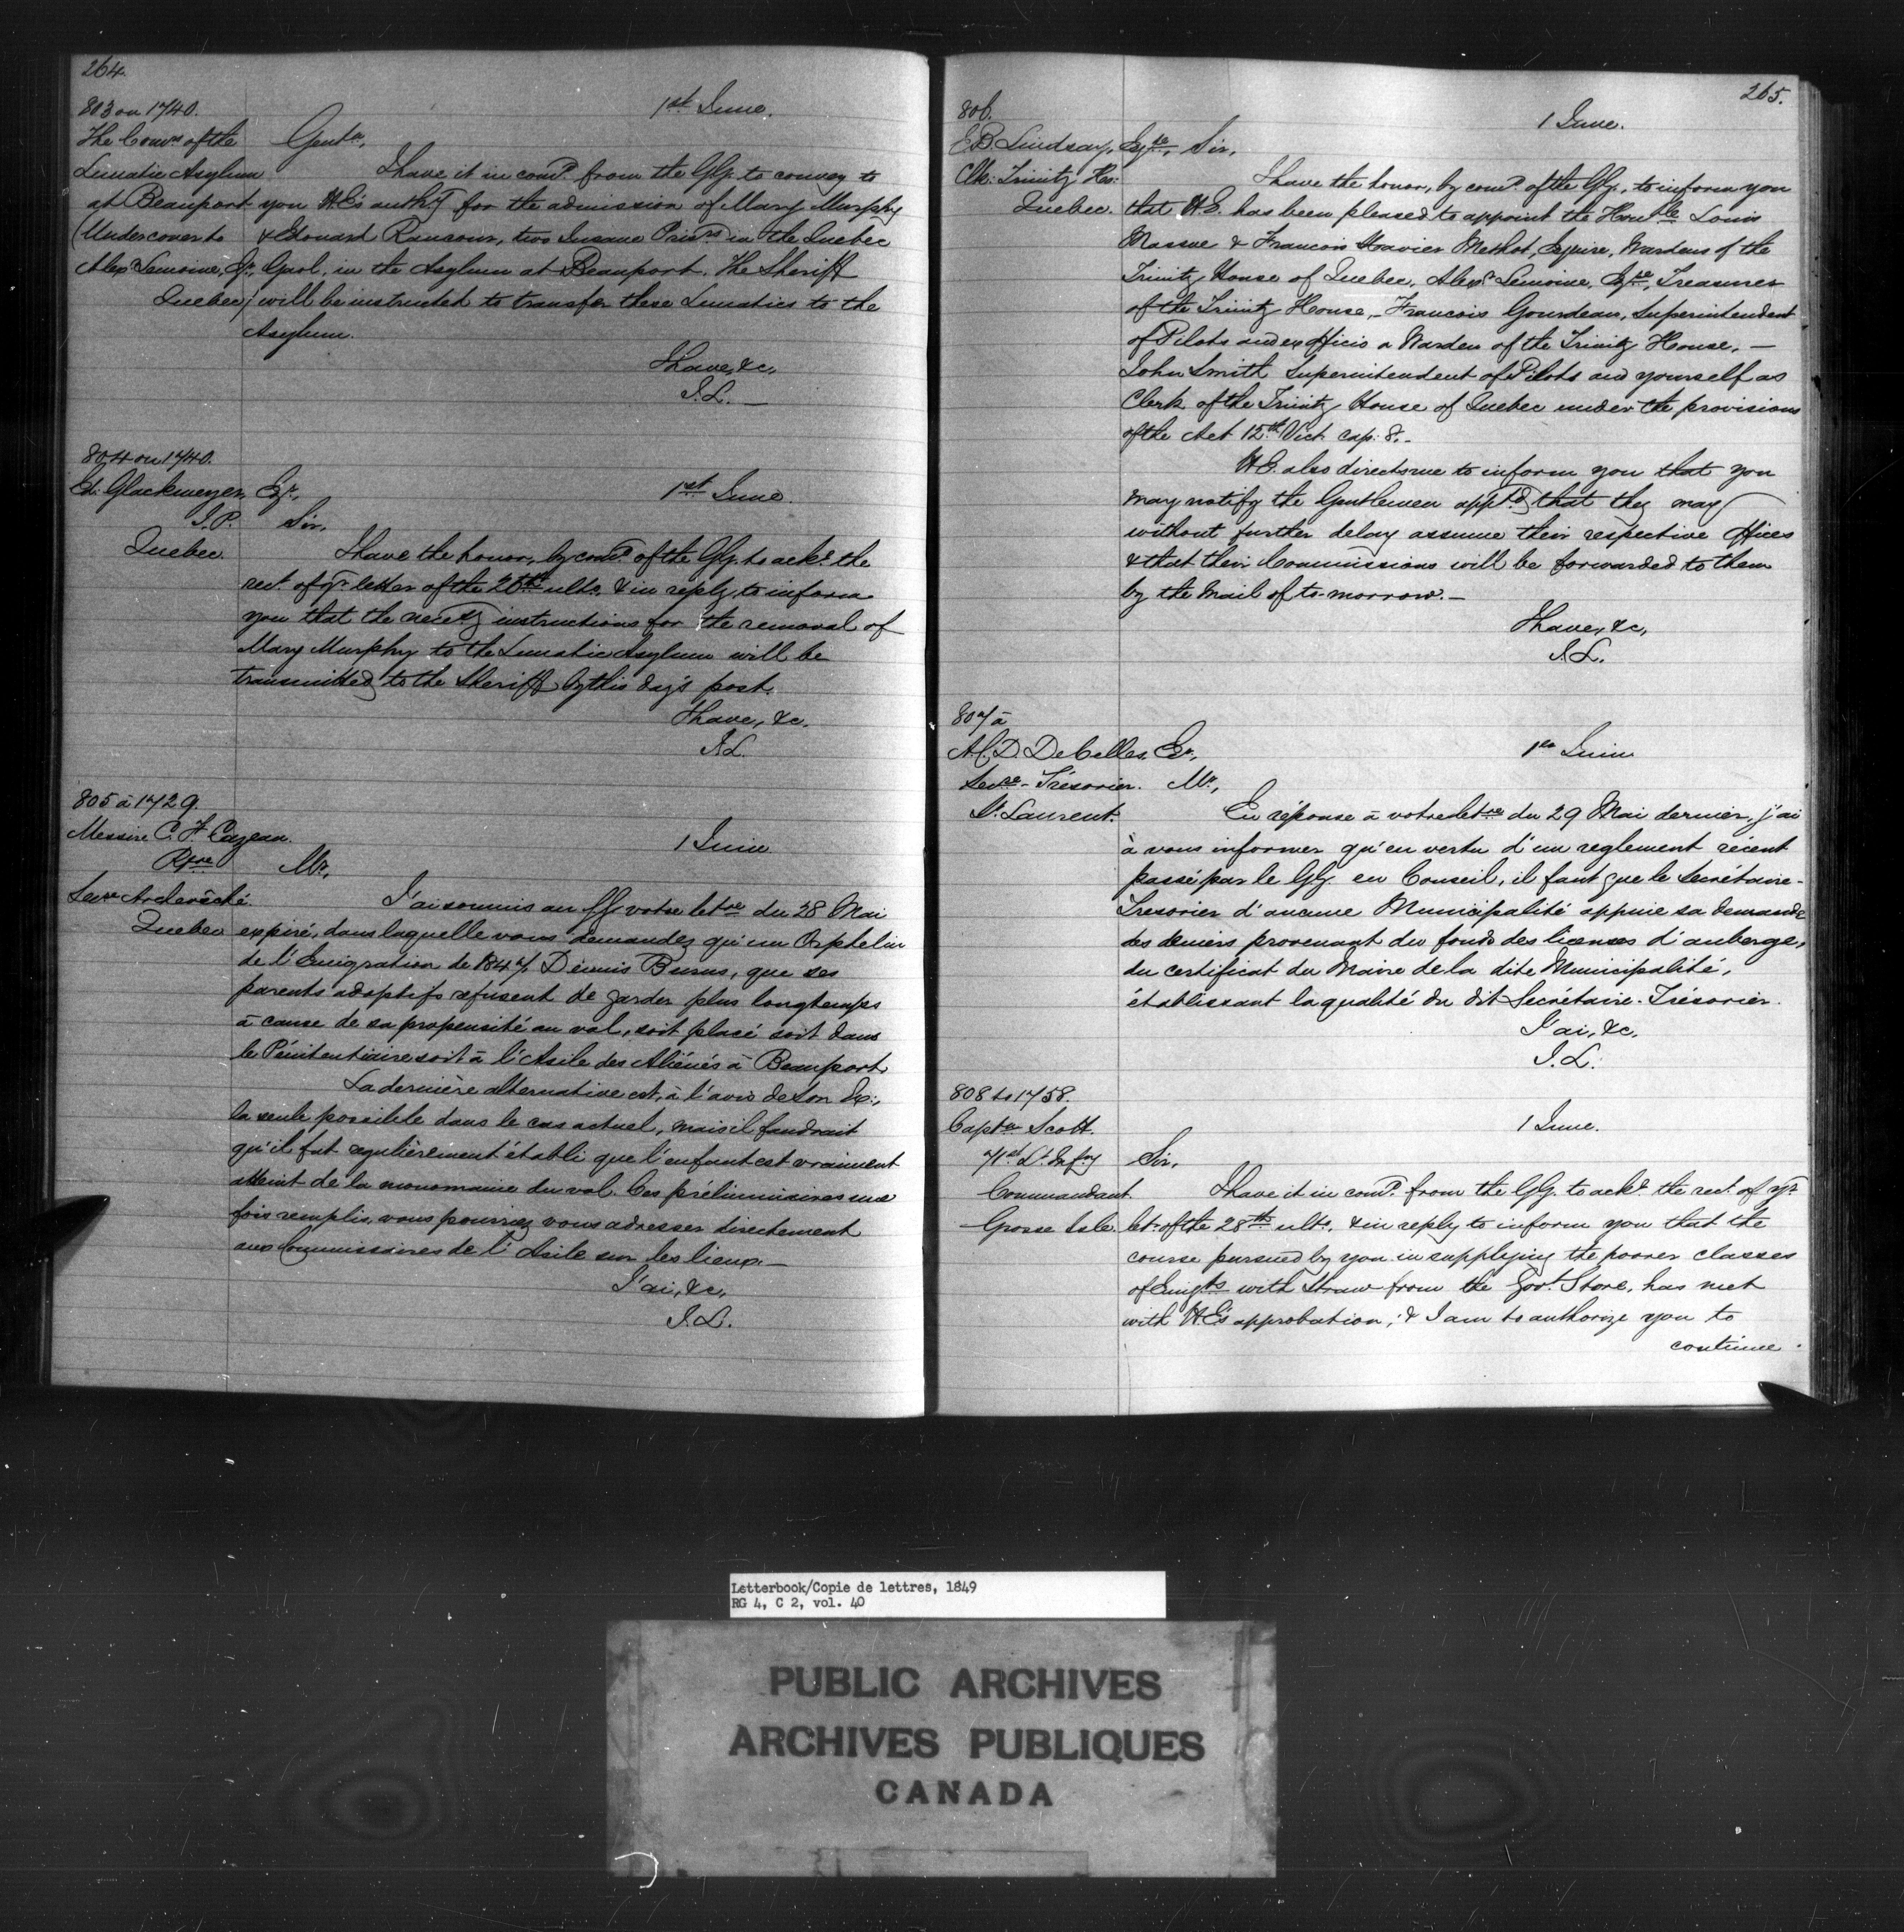 264.
803 on 1740.
1st June.
The Comrs of the Gentn,
Lunatic Asylum I have it in comd from the GG. to convey to
at Beauport you H.E's authy for the admission of Mary Murphy
(Under cover to & Edouard Rancour, two Insane Prisrs in the Quebec
Alexr Lemoine, Er, Gaol, in the Asylum at Beauport. The Sheriff
Quebec) will be instructed to transfer these Lunatics to the
Asylum.
I have, &c,
J.L. —
804 on 1740.
Ed: Glackmeyer, Er, 1st June.
J.P. Sir,
Quebec. I have the honor, by comd of the GG. to ackr the
rect. of yr letter of the 26th ulto, & in reply, to inform
you that the necessy instructions for the removal of
Mary Murphy to the Lunatic Asylum will be
transmitted to the Sheriff by this day's post.
I have, &c.
J.L.
805 à 1729.
Messire C. F. Cazeau. 1 Juin
Ptre Mr,
Secre Archevêché. J'ai soumis au GG. votre letre du 28 Mai
Quebec expiré, dans laquelle vous demandez qu'un Orphelin
de l'Emigration de 1847, Dennis Burns, que ses
parents adoptifs refusent de garder plus longtemps
à cause de sa propensité au vol, soit placé soit dans
le Pénitentiaire soit à l'Asile des Aliénés à Beauport.
La dernière alternative est, à l'avis de Son Ex:,
la seule possible dans le cas actuel, mais il faudrait
qu'il fut regulièrement établi que l'enfant est vraiment
atteint de la monomanie du vol. Ces préliminaires une
fois remplis, vous pourriez vous adresser directement
aux Commissaires de l'Asile sur les lieux. —
J'ai, &c,
J.L.
265.
806. 1 June.
E B Lindsay, Eyre, Sir,
Clk: Trinity Ho: I have the honor, by comd of the GG., to inform you
Quebec. that H.E. has been pleased to appoint the Honble Louis
Massue & Francois Xavier Methot, Esquire, Wardens of the
Trinity House of Quebec, Alexr Lemoine, Eqre, Treasurer
of the Trinity House, — Francois Gourdeau, Superintendent
of Pilots and ex officio a Warden of the Trinity House, —
John Smith Superintendent of Pilots and yourself as
Clerk of the Trinity House of Quebec under the provisions
of the Act 12th Vict. cap: 8. —
H.E. also directs me to inform you that you
may notify the Gentlemen apptd that they may
without further delay assume their respective offices
& that their Commissions will be forwarded to them
by the Mail of to-morrow. —
I have, &c,
J.L.
807 à
A.C. D. DeCelles, Er, 1er Juin
Secre-Trésorier. Mr,
St. Laurent. En réponse à votre letre du 29 Mai dernier, j'ai
à vous informer qu'en vertu d'un reglement récent
passé par le GG. en Conseil, il faut que le Secrétaire-
Tresorier d'aucune Municipalité appuie sa demande
des deniers provenant du fonds des licenses d'auberge,
du certificat du Maire de la dite Municipalité,
établissant la qualité du dit Secrétaire-Trésorier.
J'ai, &c,
J.L.
808 to 1758.
Captn Scott. 1 June.
71st Lt. Infy Sir,
Commandant. I have it in comd from the GG. to ackr the rect. of yr
Grosse Isle. letr of the 28th ulto, & in reply to inform you that the
course pursued by you in supplying the poorer classes
of Emigts with Straw from the Govt Store, has met
with H.E's approbation; & I am to authorize you to
continue
Letterbook/Copie de lettres, 1849
RG 4, C 2, vol. 40
PUBLIC ARCHIVES
ARCHIVES PUBLIQUES
CANADA